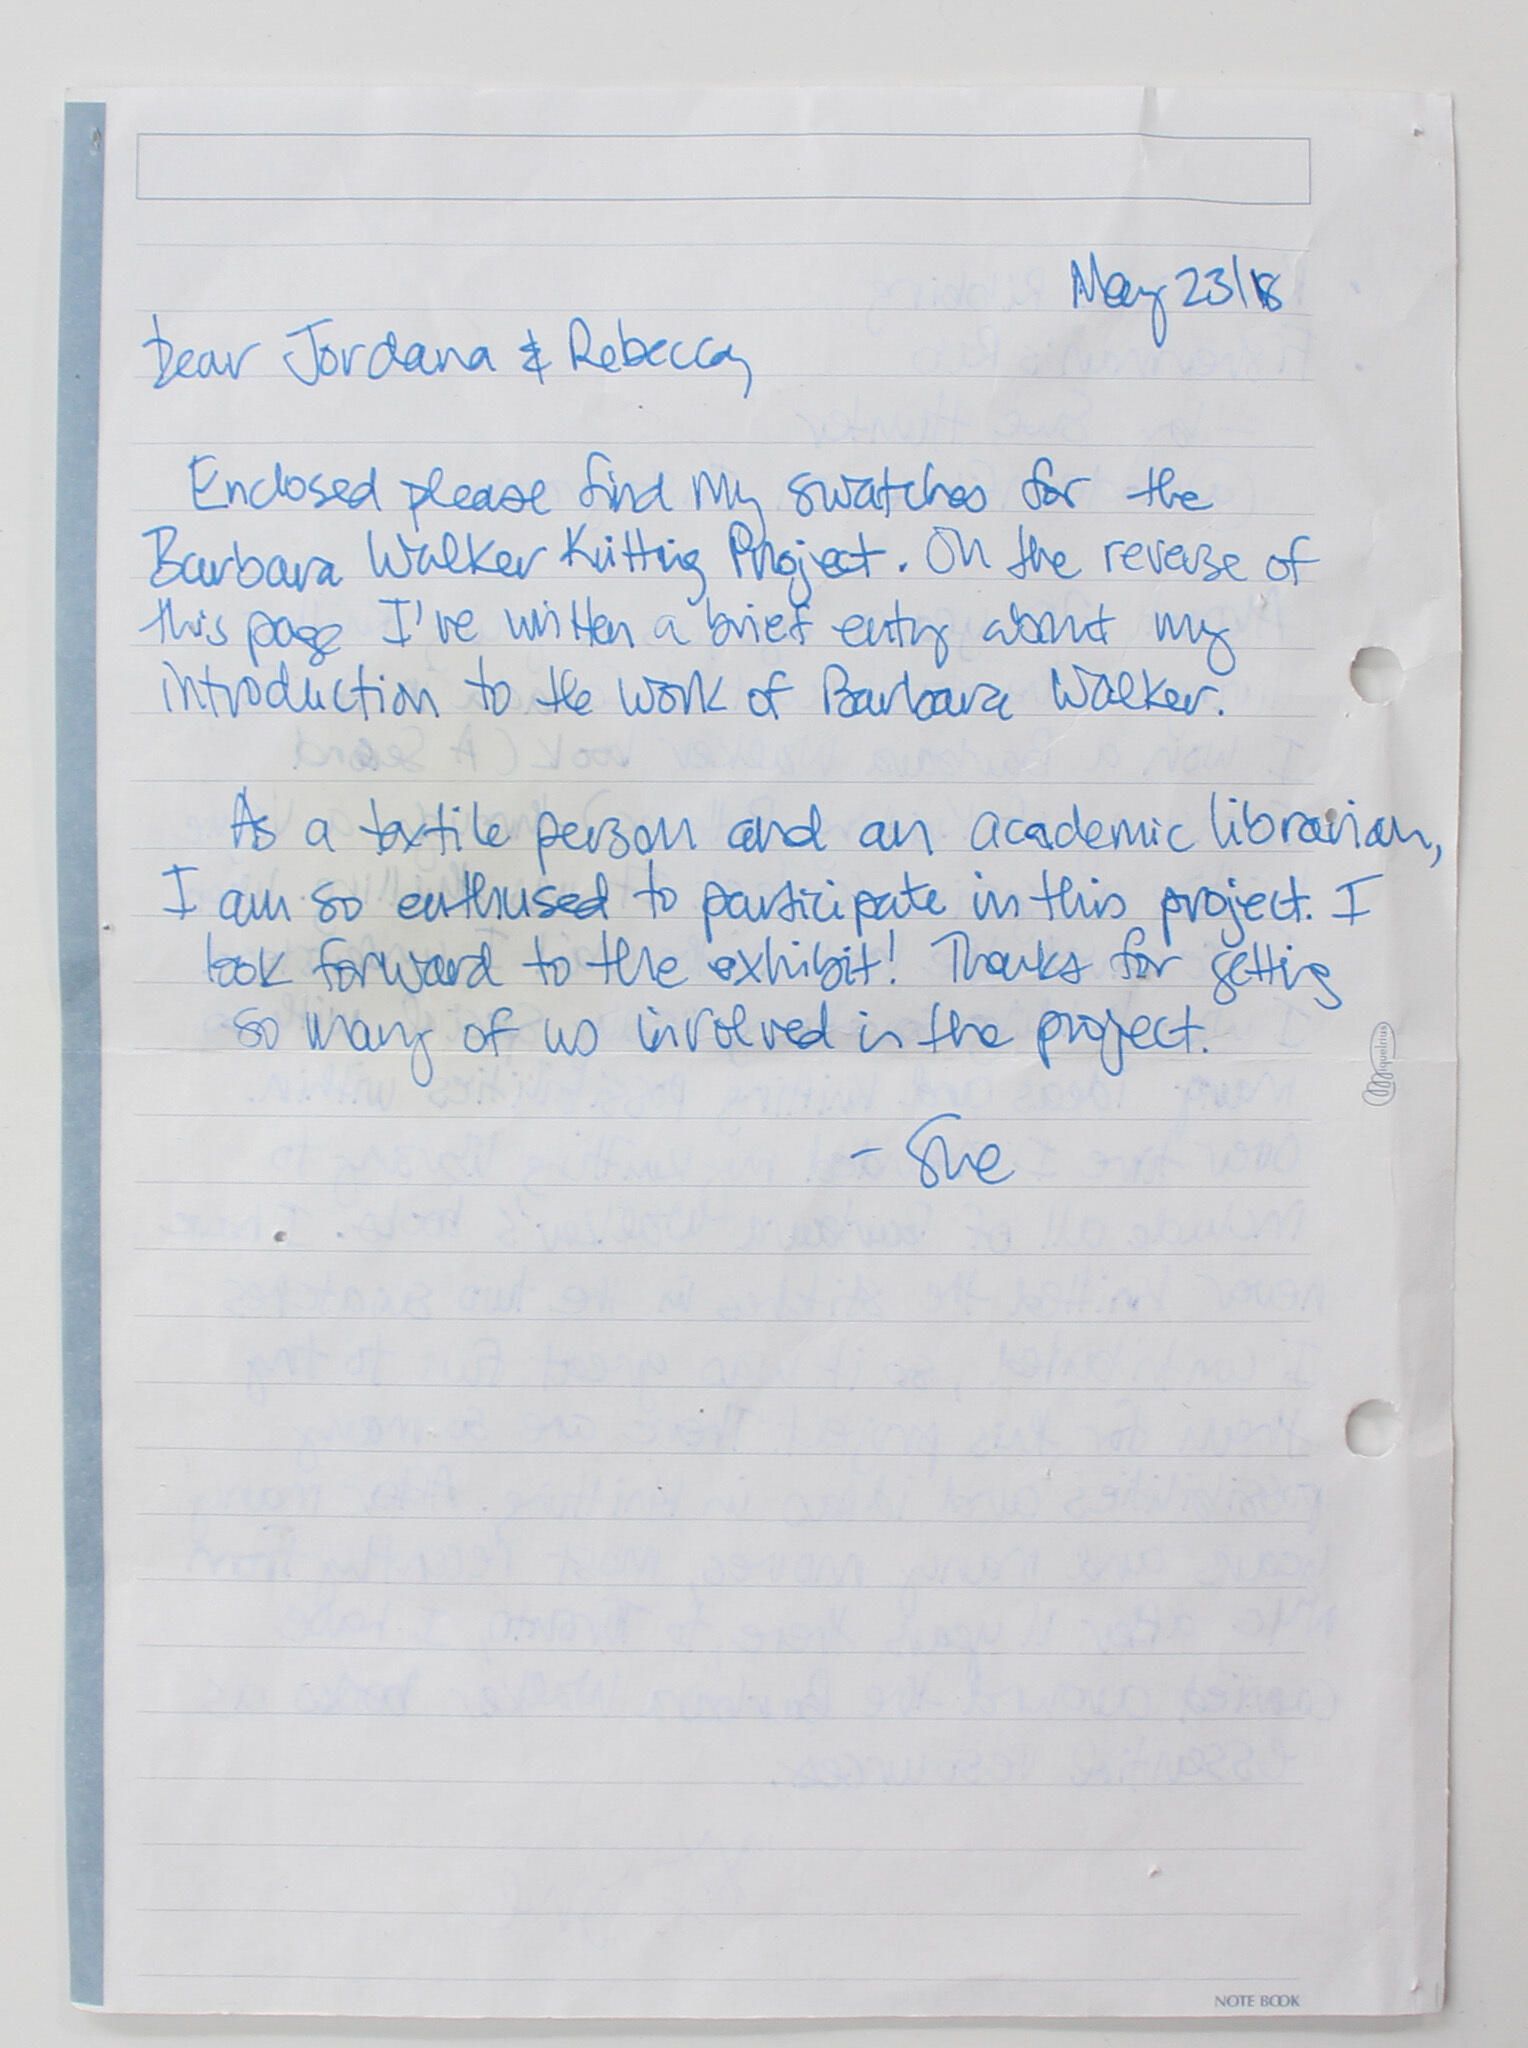 May 23/18
Dear Jordana & Rebecca,
Enclosed please find my swatches for the
Barbara Walker Knitting Project. On the reverse of
this page I've written a brief entry about my
introduction to the work of Barbara Walker.
As a textile person and an academic librarian,
I am so enthused to participate in this project. I
look forward to the exhibit! Thanks for getting
so many of us involved in the project.
- Sue
Miquelrius
NOTE BOOK